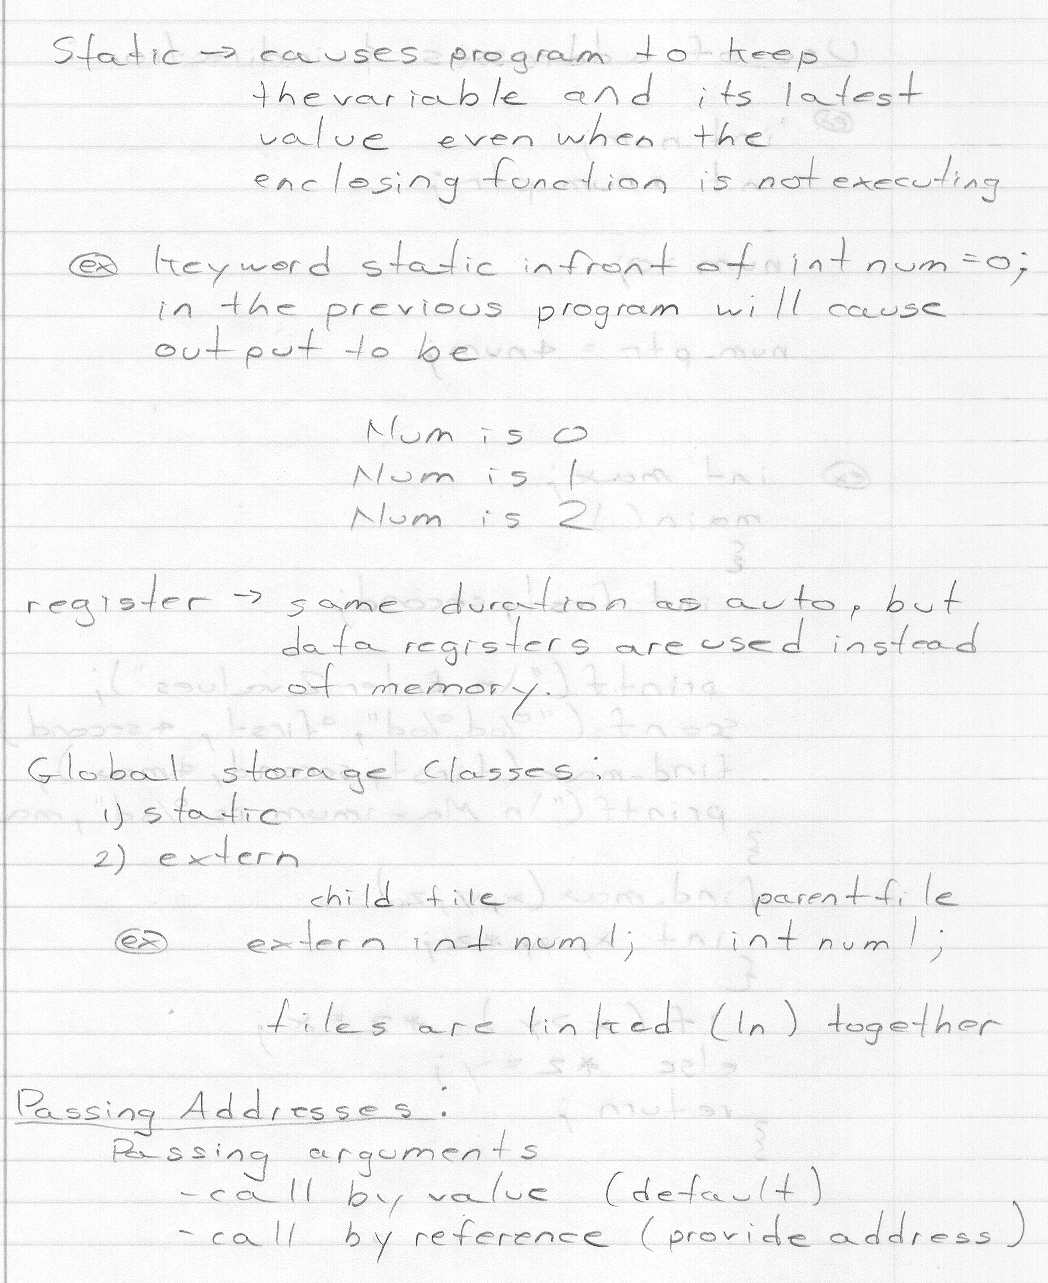 Static → causes program to keep
the variable and its latest
value even when the
enclosing function is not executing
ex keyword static infront of int num = 0;
in the previous program will cause
output to be
Num is 0
Num is 1
Num is 2
register → same duration as auto, but
data registers are used instead
of memory.
Global storage classes:
1) static
2) extern
child file parent file
ex extern int num1; int num1;
files are linked (ln) together
Passing Addresses:
Passing arguments
- call by value (default)
- call by reference (provide address)